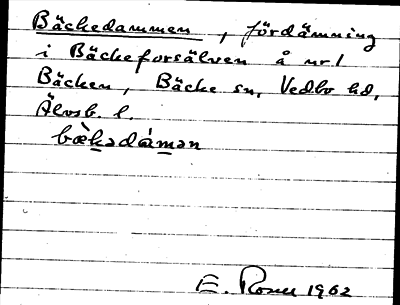 Bäckedammen, fördämning
i Bäckeforsälven å nr 1
Bäcken, Bäcke sn, Vedbo hd,
Älvsb. l.
bæ̀kədámən
E. Rosen 1962